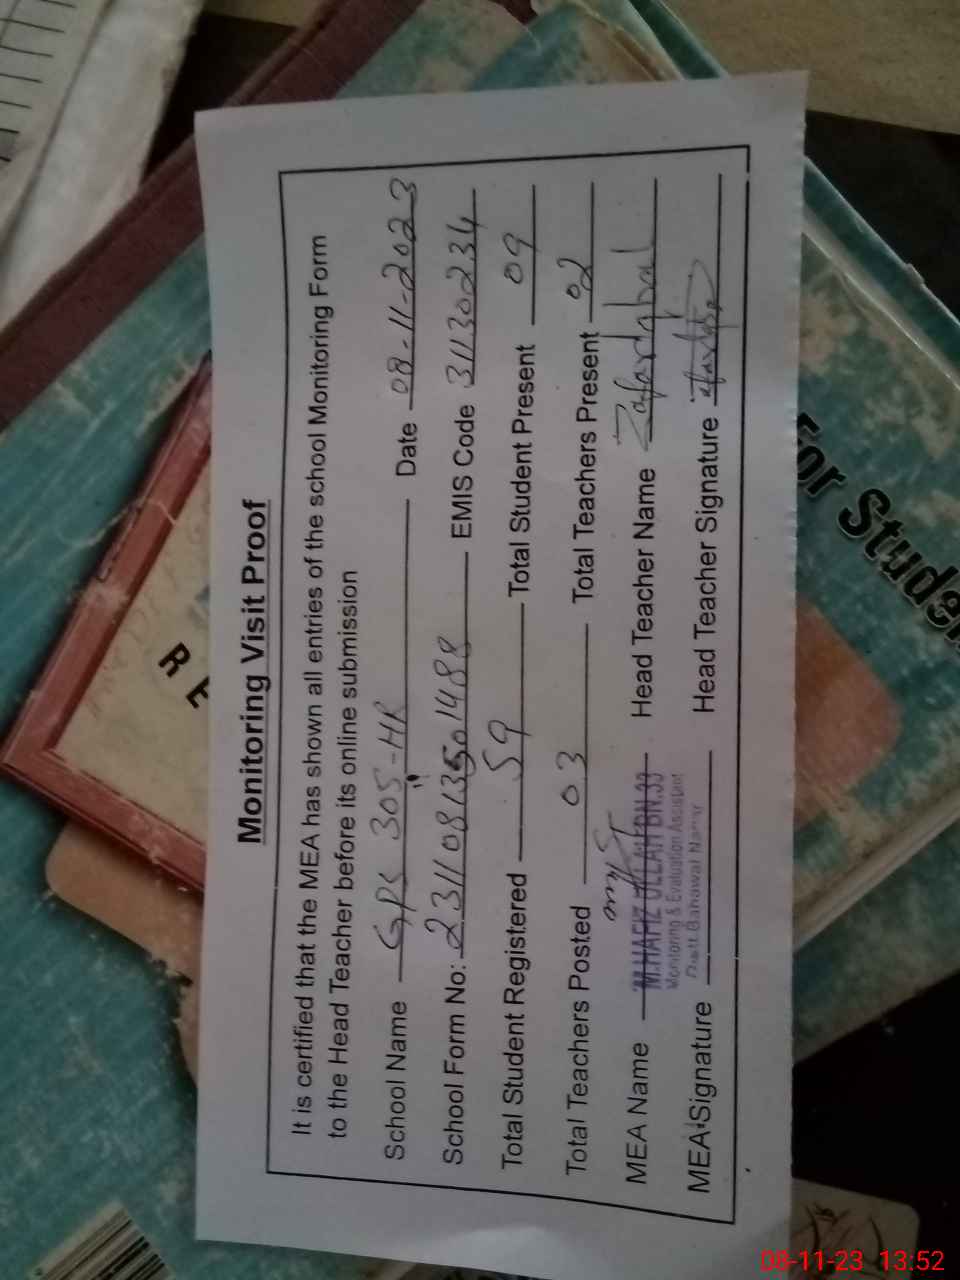 Monitoring Visit Proof
It is certified that the MEA has shown all entries of the school Monitoring Form
to the Head Teacher before its online submission
School Name GPS 305-HR Date 08-11-2023
School Form No: 23110813501488 EMIS Code 31130234
Total Student Registered 59 Total Student Present 09
Total Teachers Posted 03 Total Teachers Present 02
MEA Name M.HAFIZ ULLAH BN.33 Head Teacher Name Zafar Iqbal
Monitoring & Evaluation Assistant
Distt Bahawal Nagar
MEA Signature Head Teacher Signature
RE
For Stude
08-11-23 13:52